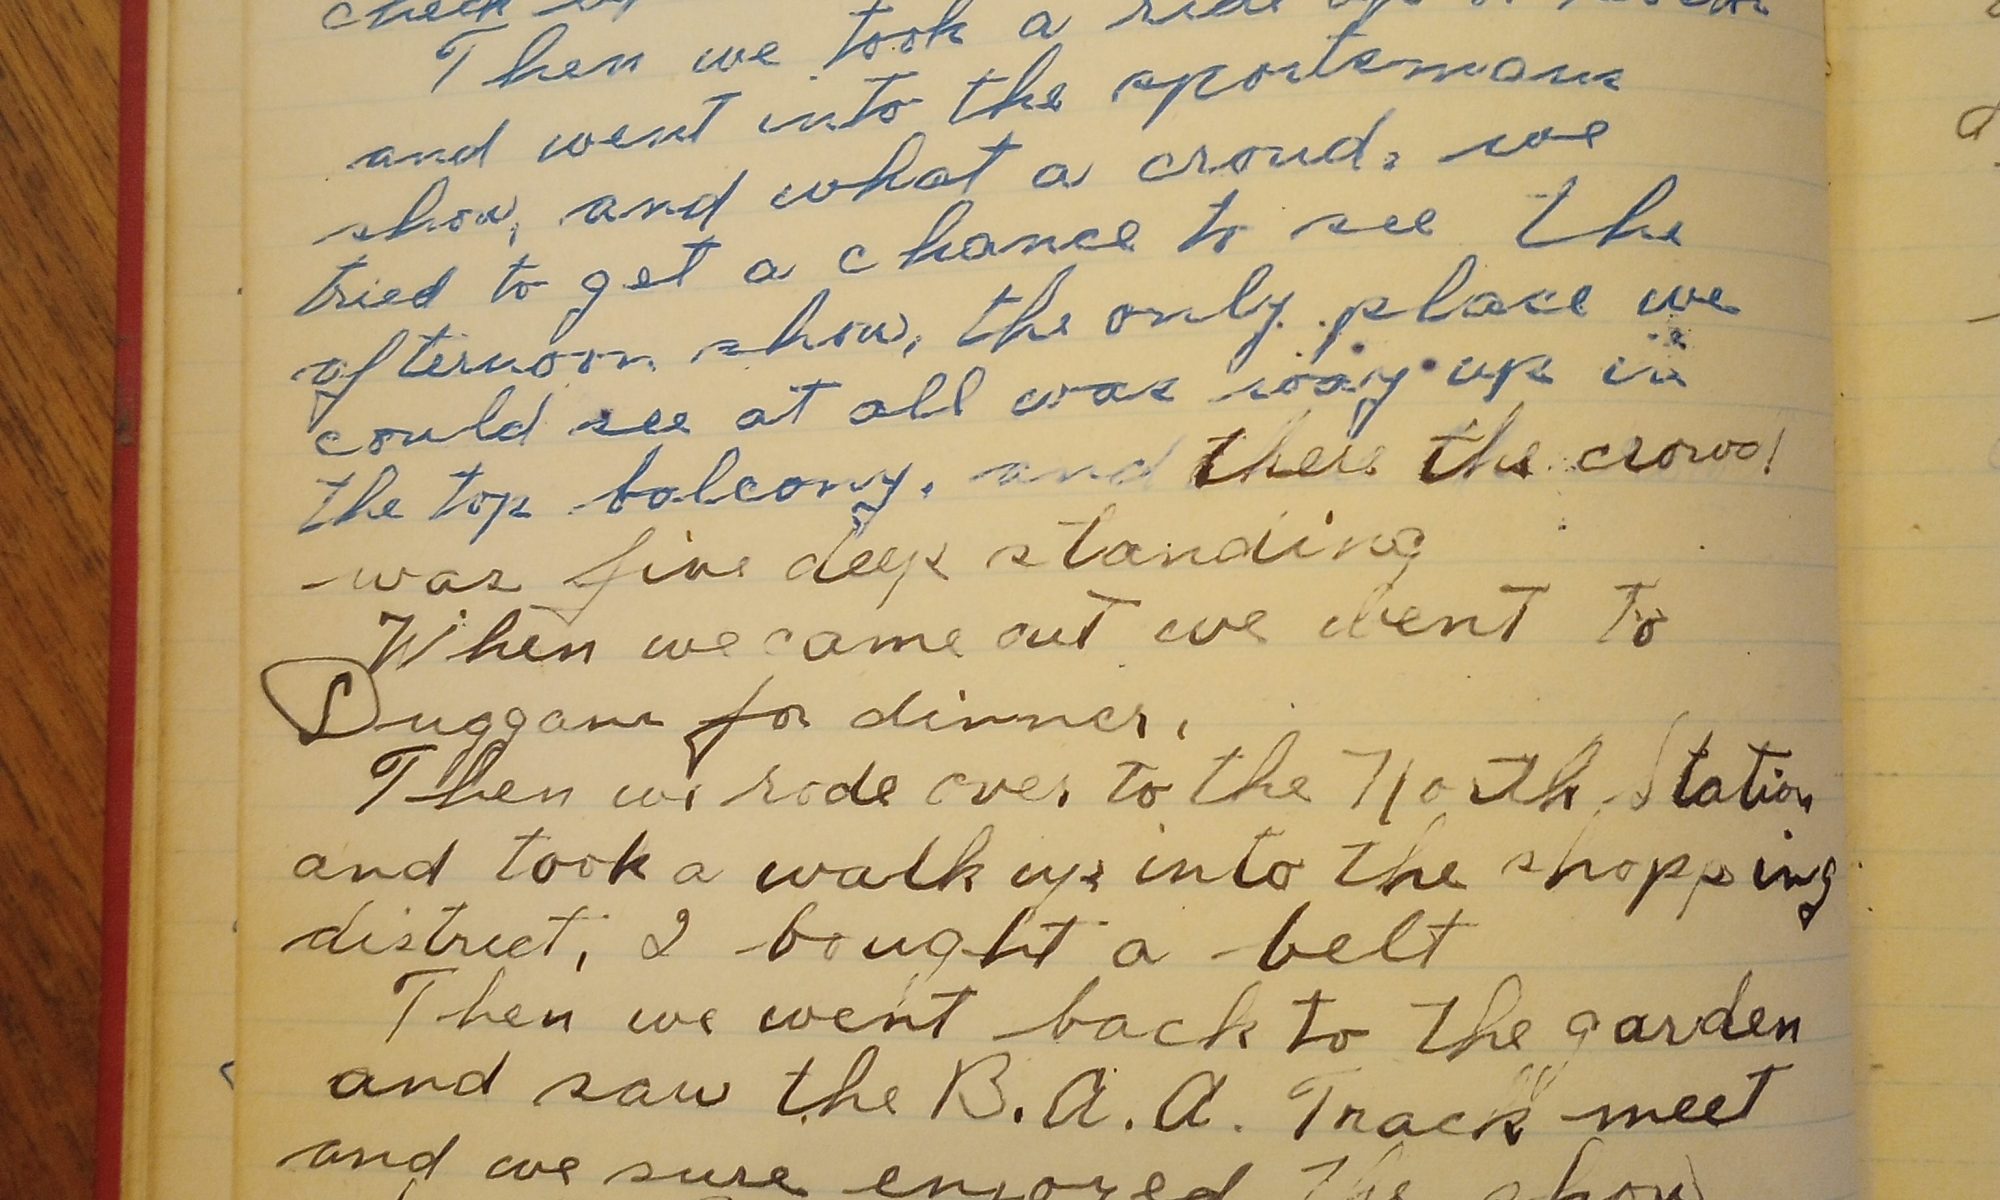 check
Then we took a ride
and went into the sportsmans
show, and what a croud. we
tried to get a chance to see the
afternoon show, the only place we
could see at all was way up in
the top balcony, and there the crowd
was five deep standing
When we came out we went to
Duggans for dinner.
Then we rode over to the North Station
and took a walk up into the shopping
district, I bought a belt
Then we went back to the garden
and saw the B.A.A. Track meet
and we sure enjoyed the show